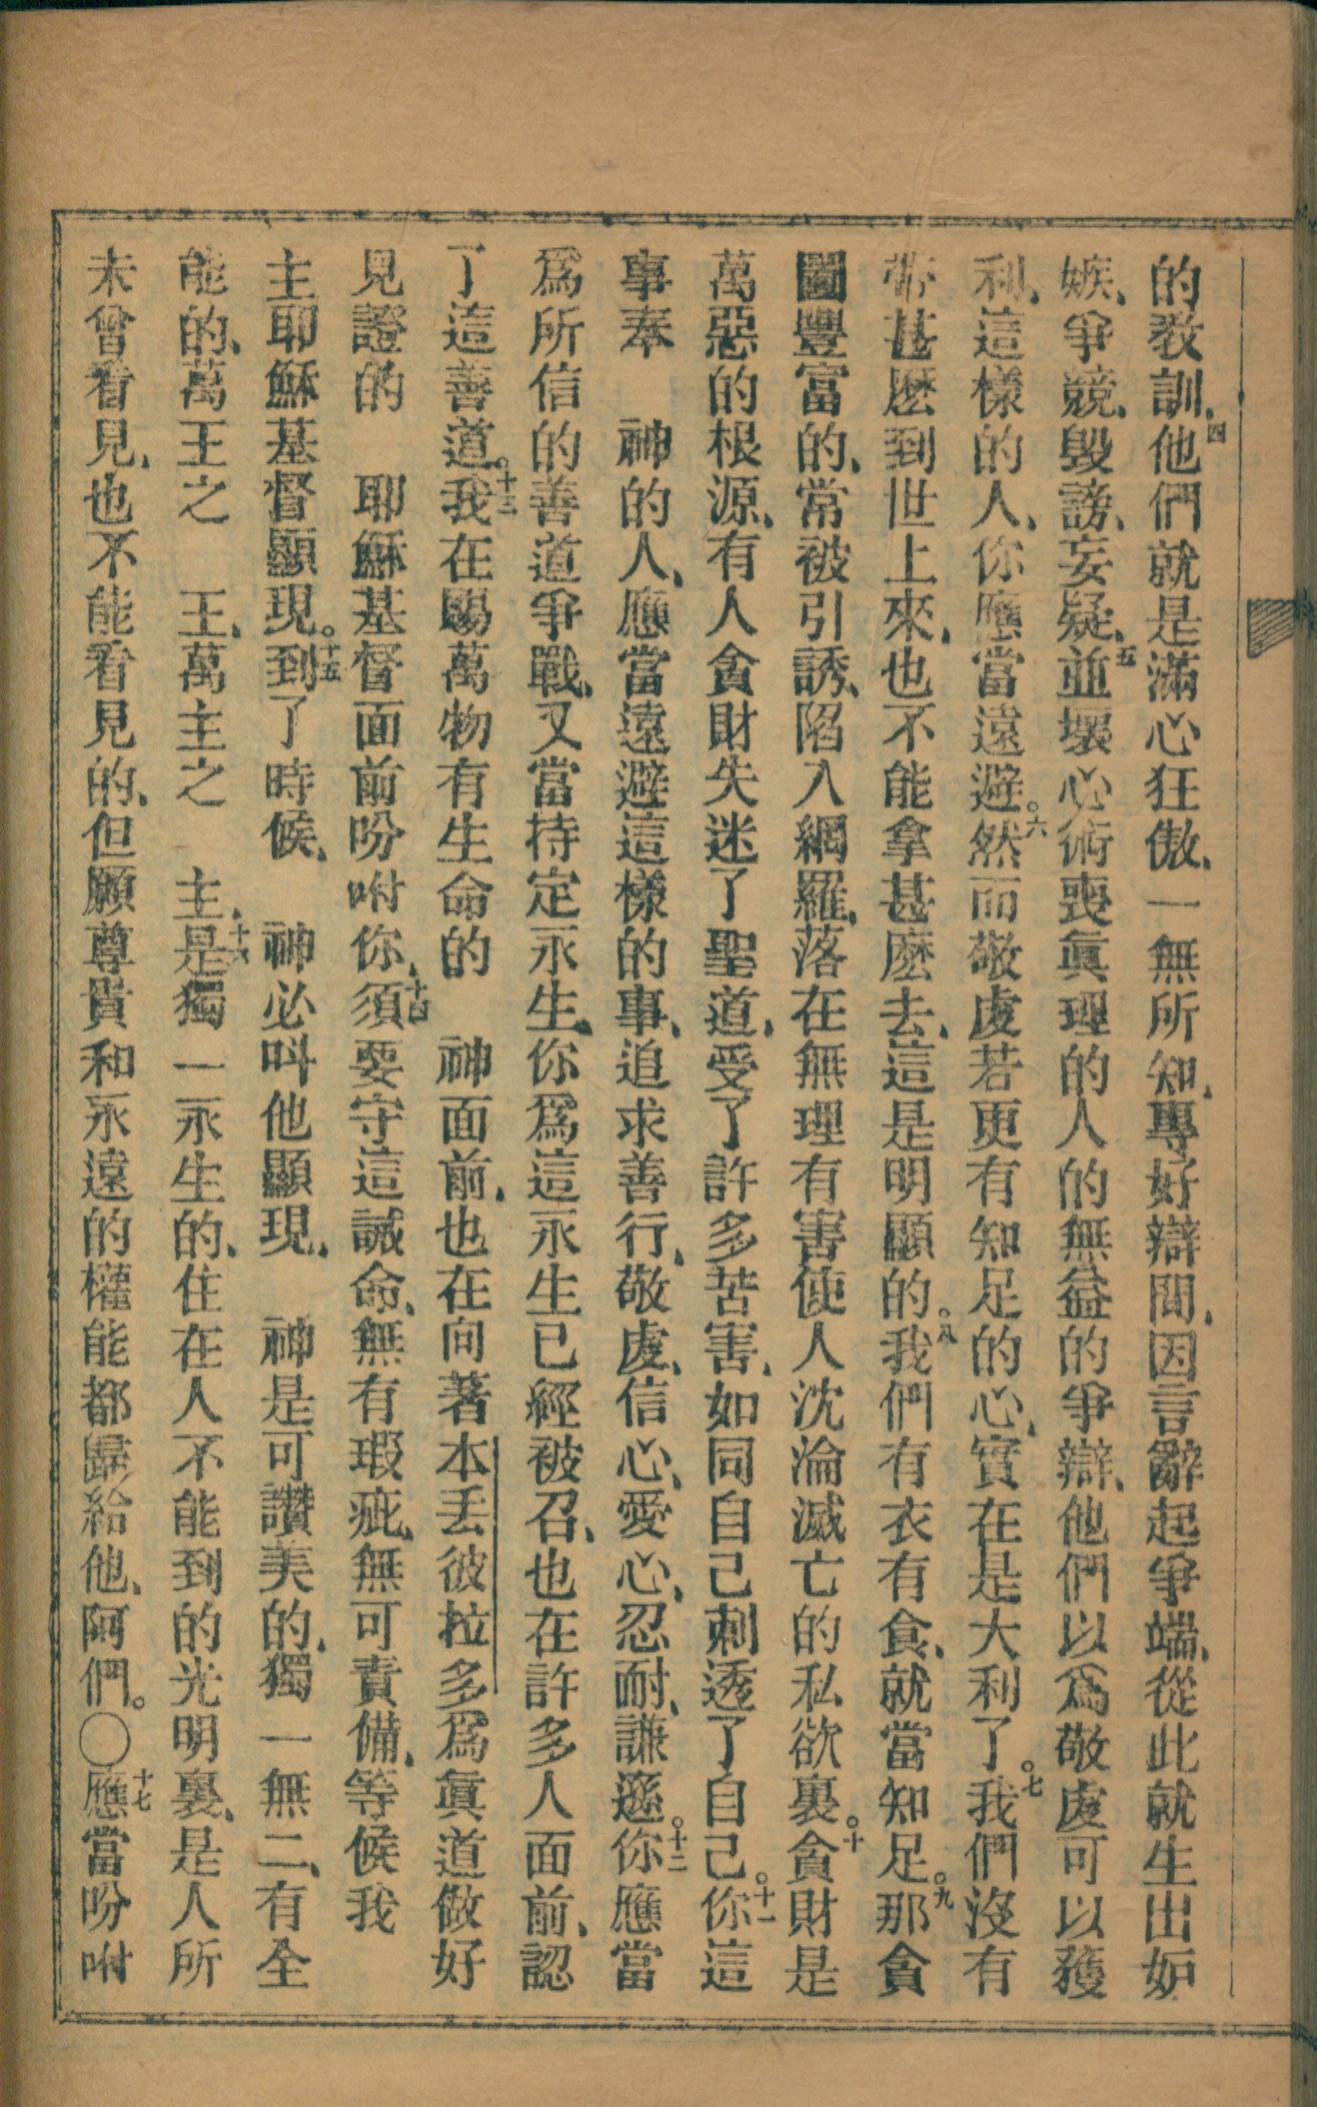 的教訓、四他們就是滿心狂傲、一無所知、專好辯問、因言辭起爭端、從此就生出妒
嫉、爭競、毀謗、妄疑、五並壞心術喪眞理的人的無益的爭辯、他們以爲敬虔可以獲
利、這樣的人、你應當遠避。六然而敬虔若更有知足的心、實在是大利了。七我們沒有
帶甚麽到世上來、也不能拿甚麽去、這是明顯的。八我們有衣有食、就當知足。九那貪
圖豐富的、常被引誘、陷入網羅、落在無理有害使人沈淪滅亡的私欲裏。十貪財是
萬惡的根源、有人貪財失迷了聖道、受了許多苦害、如同自己刺透了自己。十一你這
事奉　神的人、應當遠避這樣的事、追求善行、敬虔、信心、愛心、忍耐、謙遜。十二你應當
爲所信的善道爭戰、又當持定永生、你爲這永生已經被召、也在許多人面前、認
了這善道。十三我在賜萬物有生命的　神面前、也在向著本丢彼拉多爲眞道做好
見證的　耶穌基督面前吩咐你、十四須要守這誡命、無有瑕疵、無可責備、等候我
主耶穌基督顯現。十五到了時候、　神必叫他顯現、　神是可讚美的、獨一無二、有全
能的、萬王之　王、萬主之　主、十六是獨一永生的、住在人不能到的光明裏、是人所
未曾看見、也不能看見的、但願尊貴和永遠的權能都歸給他、阿們。〇十七應當吩咐